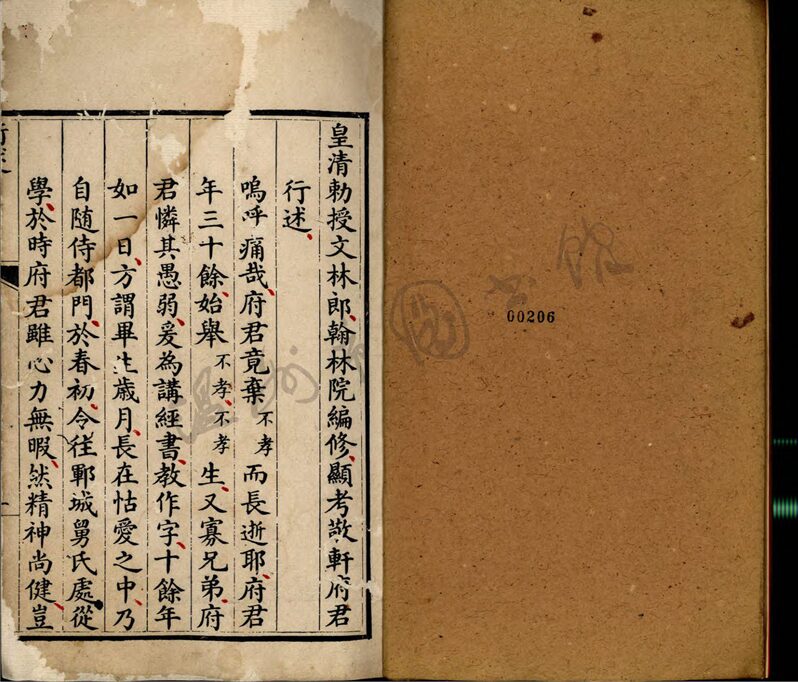 00206
皇清勅授文林郎翰林院編修顯考敬軒府君
行述
嗚呼痛哉府君竟棄不孝而長逝耶府君
年三十餘始舉不孝不孝生又寡兄弟府
君憐其愚弱爰為講經書教作字十餘年
如一日方謂畢生歲月長在怙愛之中乃
自随侍都門於春初令往鄆城舅氏處從
學於時府君雖心力無暇然精神尚健豈